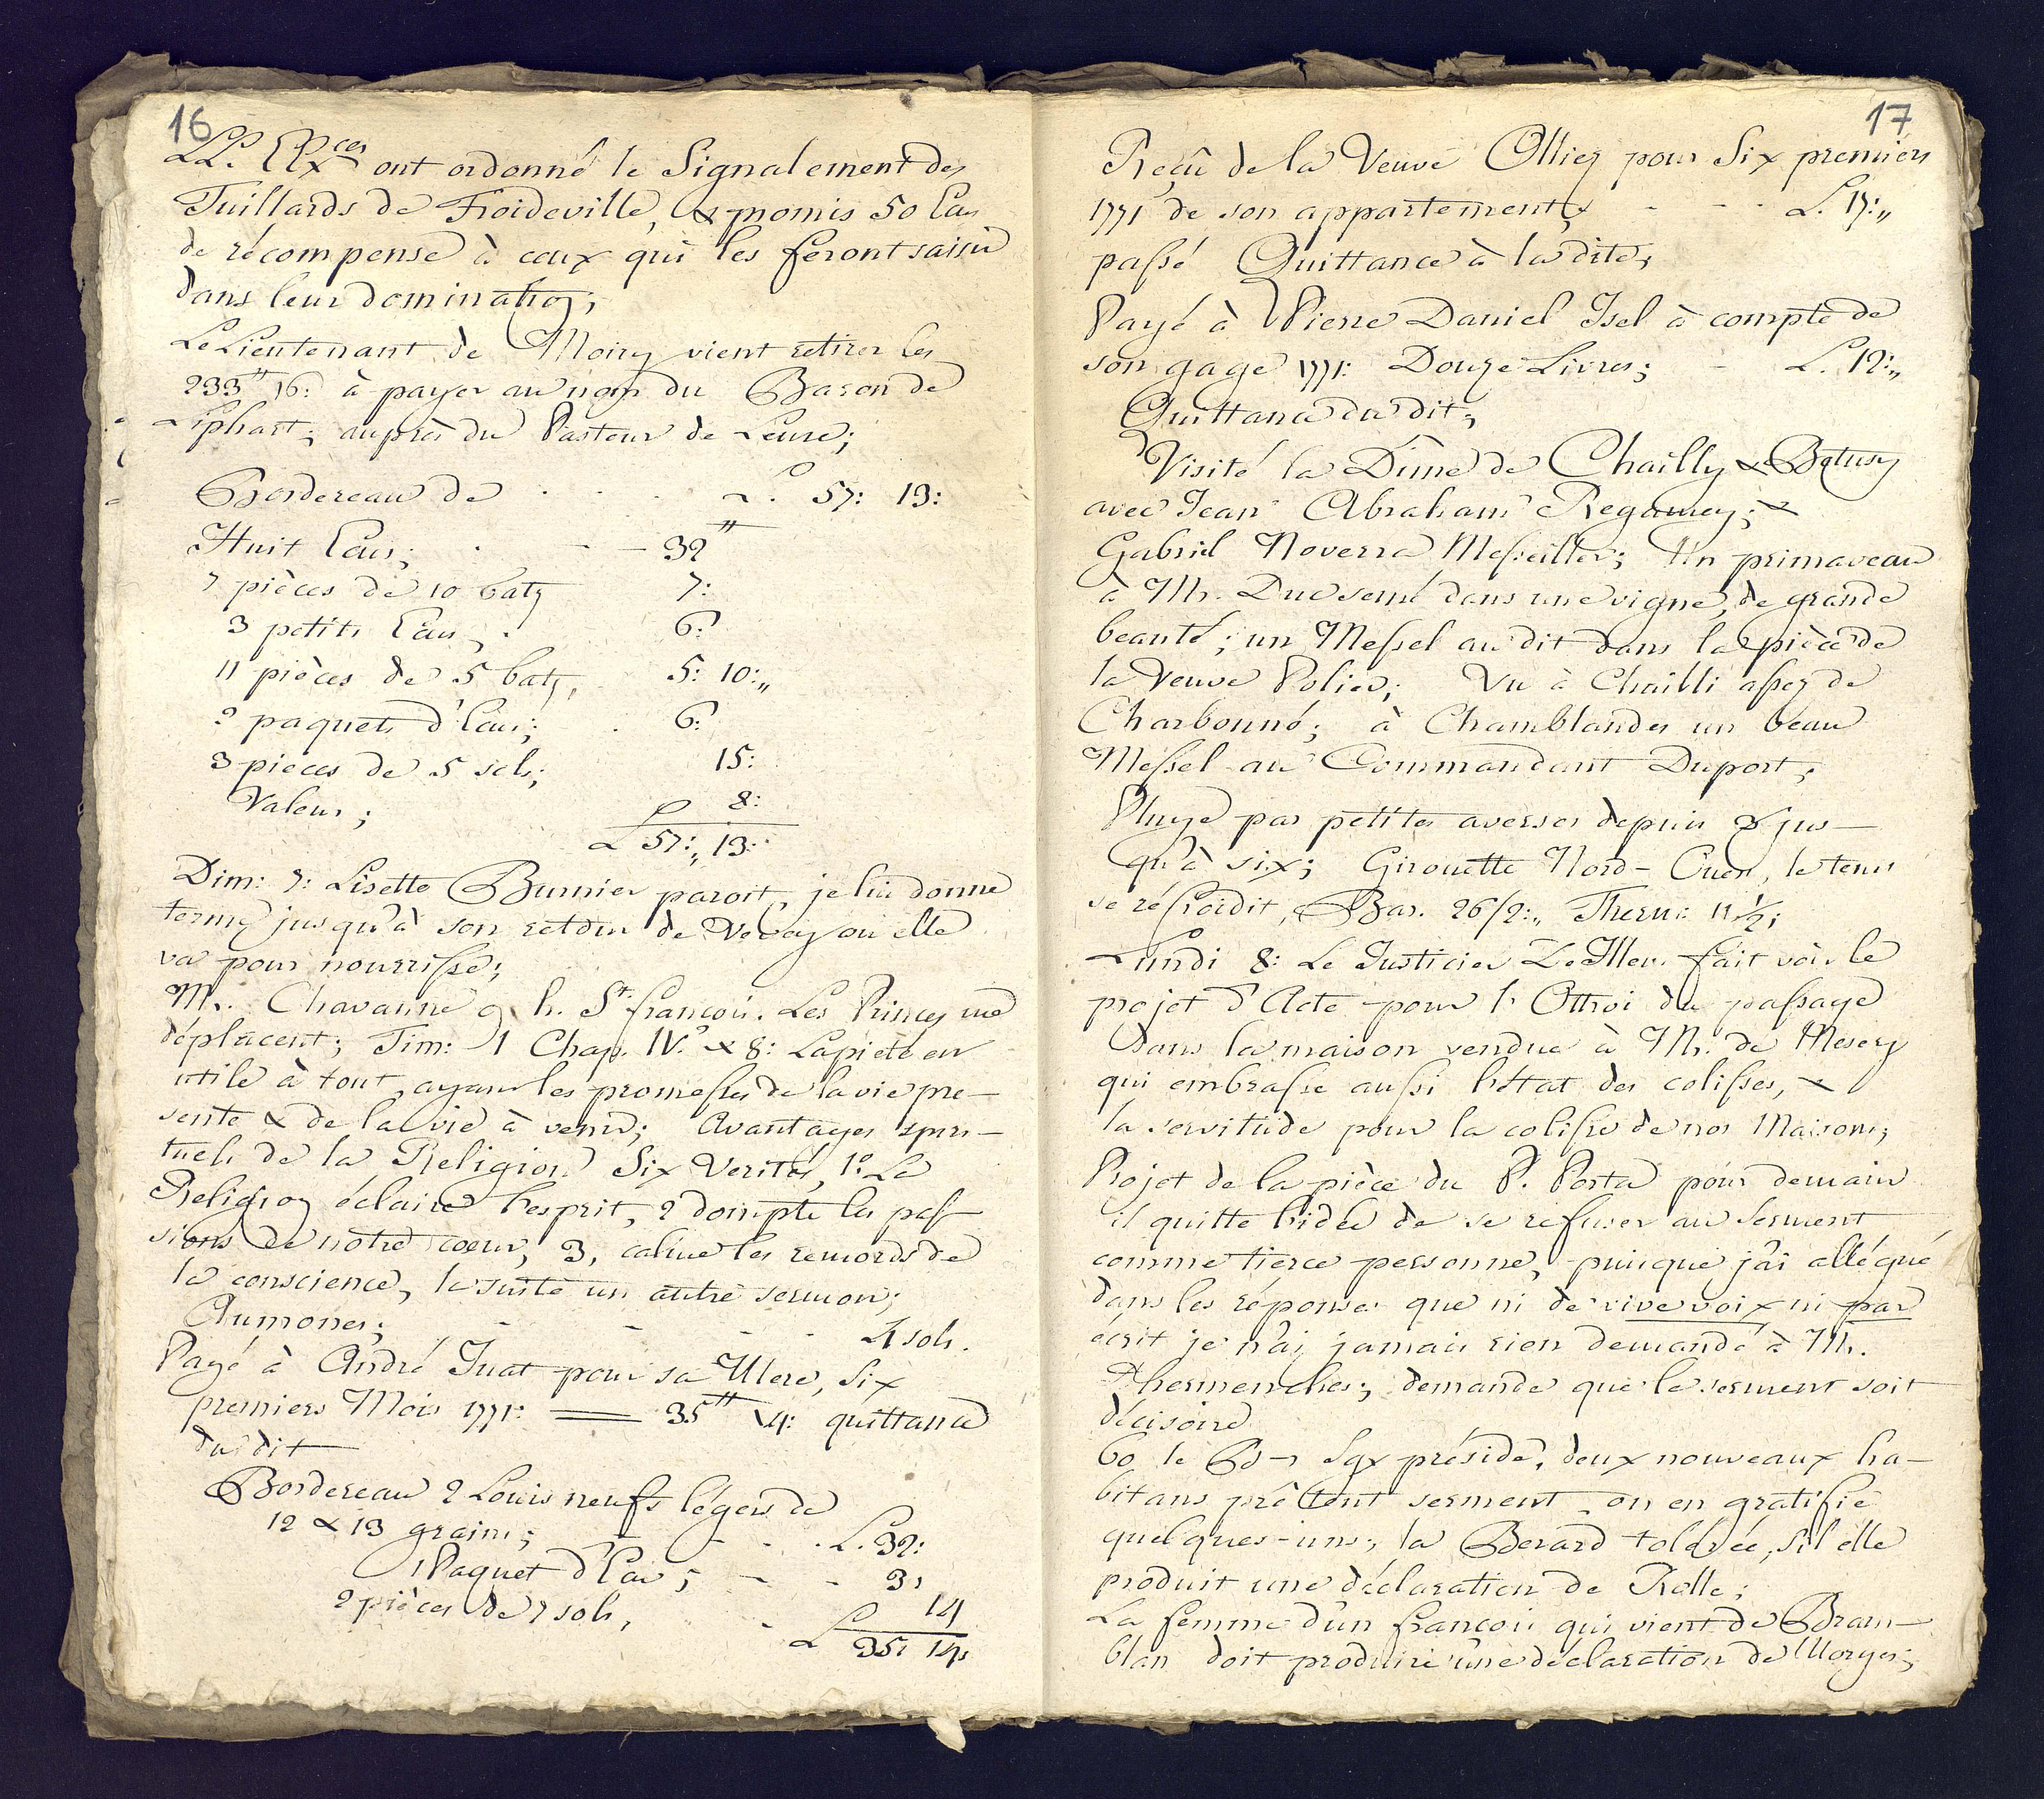 16
LL. EExces ont ordonné le Signalement des
Tuillards de Froideville, & promis 50 Ecus
de récompense à ceux qui les feront saisir
dans leur domination;
Le Lieutenant de Moiry vient retirer les
233 tt 16: à payer au nom du Baron de
Liphart; auprès du Pasteur de Leure;
Bordereau de . . . L. 57: 13:
Huit Ecus; . - - 32 tt
7 pièces de 10 batz 7:
3 petits Ecus, . 6:
11 pièces de 5 batz, 5: 10:,,
2 paquets d'Ecus; . 6:
3 pieces de 5 sols; 15:
Valeur; 8:
L 57:,, 13:
Dim: 7: Lisette Burnier paroit, je lui donne
terme jusqu'à son retour de Vevey où elle
va pour nourrisse;
Mr. Chavanne 9 h. St. françois. Les Princes me
déplacent; Tim: 1 Chap. IV. & 8: La pieté est
utile à tout, ayant les promesses de la vie pre-
sente & de la vie à venir; Avantages spiri-
tuels de la Religion Six Verités, 1º La
Religion éclaire l'esprit, 2 dompte les pas-
sions de nôtre coeur, 3, calme les remords de
la conscience, la suite un autre sermon;
Aumones; - - - - 4 sols.
Payé à André Juat pour sa Mere, Six
premiers Mois 1771: == 35 tt 14: quittance
du dit
Bordereau 2 Louis neufs légers de
12 & 13 grains; - - . L. 32:
1 Paquet d'Ecus; - - 3:
2 pièces de 7 sols, - 14
L 35: 14:
17
Reçû de la Veuve Olliez pour Six premiers
1771 de son appartement - - - L. 17:,,
passé Quittance à la dite,
Payé à Pierre Daniel Isel à compte de
son gage 1771: Douze Livres; - L. 12:,,
Quittance du dit;
Visité la Dîme de Chailly & Belusy
avec Jean Abraham Regamey; &
Gabriel Noverra Messeiller; Un primaveau
à Mr. Duc semé dans une vigne, de grande
beauté; un Messel au dit dans la pièce de
la Veuve Polier; Vu à Chailli assez de
Charbonné; à Chamblandes un beau
Messel au Commandant Duport,
Pluye par petites averses depuis 3 jus-
qu'à six; Girouette Nord-Ouest, le tems
se réfroidit, Bar. 26/2:,, Therm: 11 1/2;
Lundi 8: Le Justicier fait voir le
projet d'Acte pour l'Ottroi du passage
dans la maison vendue à Mr. de Mesery
qui embrasse aussi l'état des colisses, &
la servitude pour la colisse de nos Maisons;
Projet de la pièce du P. Porta pour demain
il quitte l'idée de se refuser au serment
comme tierce personne, puisque j'ai allégué
dans les réponses que ni de vive voix ni par
écrit je n'ai jamais rien demandé à Mr.
Dhermenches; demande que le serment soit
décisoire
60 le Bd-r Sgx préside, deux nouveaux ha-
bitans prêttent serment, on en gratifie
quelques-uns; la Berard tolérée, si elle
produit une déclaration de Rolle;
La femme d'un françois qui vient de Bram-
blan doit produire une déclaration de Morges;